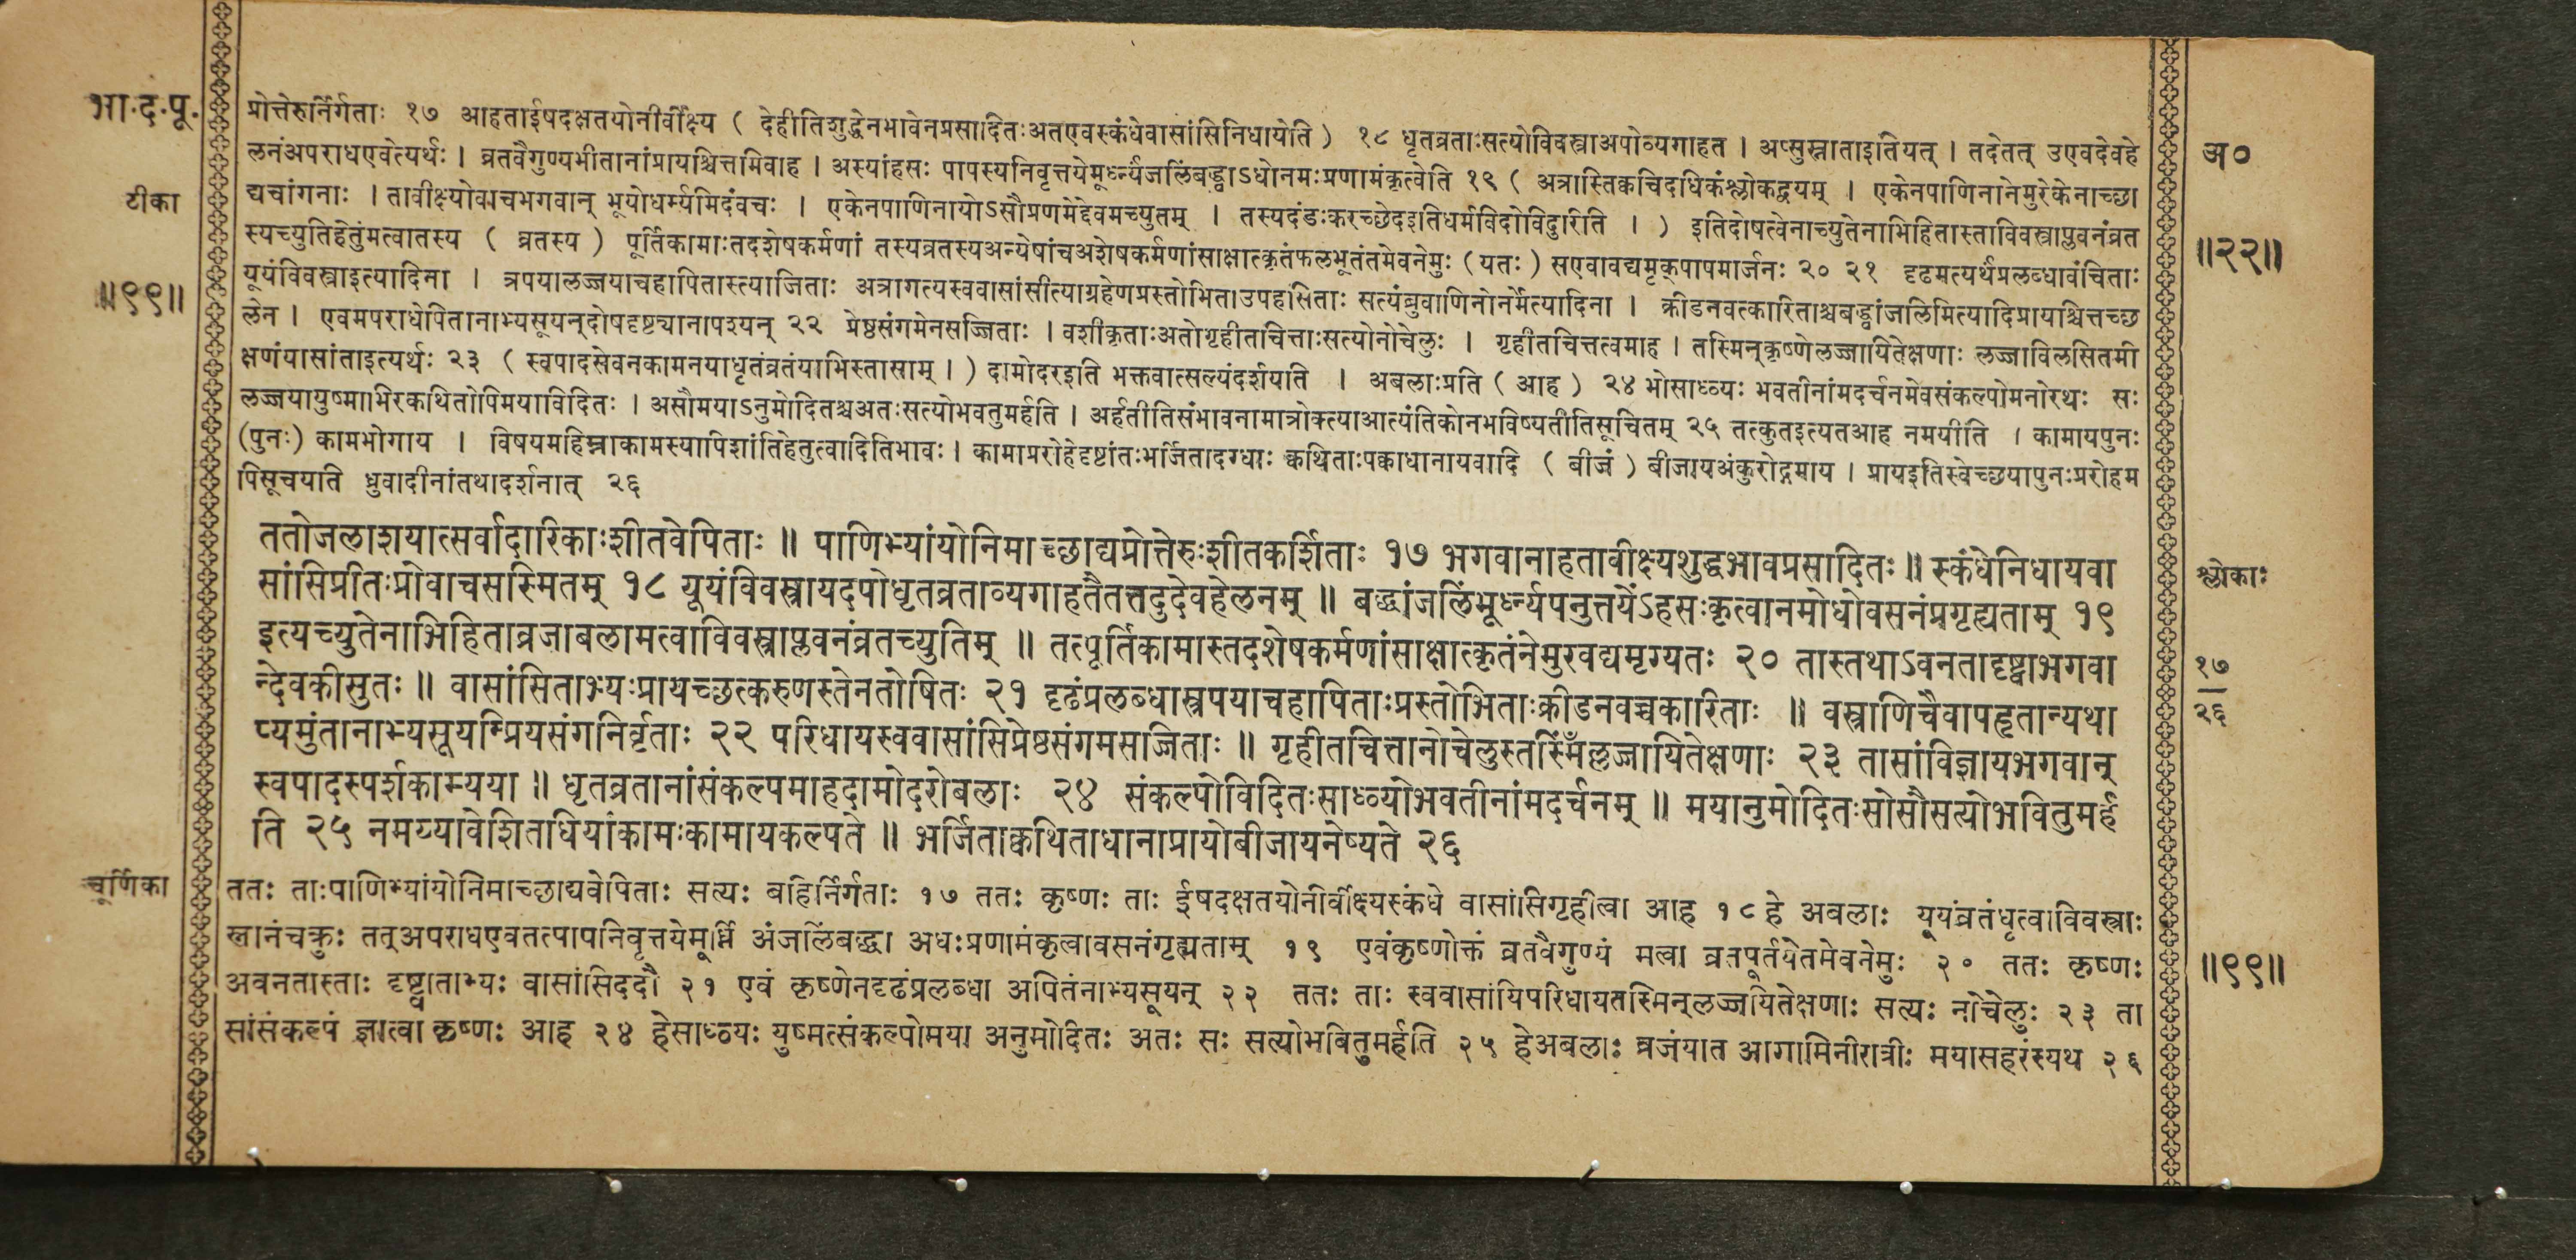 भा.द.पू.
टीका
॥९९॥
प्रोत्तेरुर्निर्गताः १७ आहताईषदक्षतयोनीर्वीक्ष्य ( देहीतिशुद्धेनभावेनप्रसादितःअतएवस्कंधेवासांसिनिधायेति ) १८ धृतव्रताःसत्योविवस्त्राअपोव्यगाहत । अप्सुस्नाताइतियत् । तदेतत् उएवदेवहे
लनंअपराधएवेत्यर्थः । व्रतवैगुण्यभीतानांप्रायश्चित्तमिवाह । अस्यांहसः पापस्यनिवृत्तयेमूर्ध्न्यंजलिंबद्ध्वाऽधोनमःप्रणामंकृत्वेति १९ ( अत्रास्तिकचिदधिकंश्लोकद्वयम् । एकेनपाणिनानेमुरेकेनाच्छा
द्यचांगनाः । तावीक्ष्योवाचभगवान् भूयोधर्म्यमिदंवचः । एकेनपाणिनायोऽसौप्रणमेद्देवमच्युतम् । तस्यदंडःकरच्छेदइतिधर्मविदोविदुरिति । ) इतिदोषत्वेनाच्युतेनाभिहितास्ताविवस्त्राप्लवनंव्रत
स्यच्युतिहेतुंमत्वातस्य ( व्रतस्य ) पूर्तिकामाःतदशेषकर्मणां तस्यव्रतस्यअन्येषांचअशेषकर्मणांसाक्षात्कृतंफलभूतंतमेवनेमुः (यतः) सएवावद्यमृक्पापमार्जनः २० २१ दृढमत्यर्थंप्रलब्धावंचिताः
यूयंविवस्त्राइत्यादिना । त्रपयालज्जयाचहापितास्त्याजिताः अत्रागत्यस्ववासांसीत्याग्रहेणप्रस्तोभिताउपहसिताः सत्यंब्रुवाणिनोनर्मेत्यादिना । क्रीडनवत्कारिताश्चबद्ध्वांजलिमित्यादिप्रायश्चित्तच्छ
लेन । एवमपराधेपितानाभ्यसूयन्दोषदृष्ट्यानापश्यन् २२ प्रेष्ठसंगमेनसज्जिताः । वशीकृताःअतोगृहीतचित्ताःसत्योनोचेलुः । गृहीतचित्तत्वमाह । तस्मिन्कृष्णेलज्जायितेक्षणाः लज्जाविलसितमी
क्षणंयासांताइत्यर्थः २३ ( स्वपादसेवनकामनयाधृतंव्रतंयाभिस्तासाम् । ) दामोदरइति भक्तवात्सल्यंदर्शयति । अबलाःप्रति ( आह ) २४ भोसाध्व्यः भवतीनांमदर्चनमेवसंकल्पोमनोरथः सः
लज्जयायुष्माभिरकथितोपिमयाविदितः । असौमयाऽनुमोदितश्चअतःसत्योभवतुमर्हति । अर्हतीतिसंभावनामात्रोक्त्याआत्यंतिकोनभविष्यतीतिसूचितम् २५ तत्कुतइत्यतआह नमयीति । कामायपुनः
(पुनः) कामभोगाय । विषयमहिम्नाकामस्यापिशांतिहेतुत्वादितिभावः । कामाप्ररोहेदृष्टांतःभर्जितादग्धाः क्वथिताःपक्काधानायवादि ( बीजं ) बीजायअंकुरोद्गमाय । प्रायइतिस्वेच्छयापुनःप्ररोहम
पिसूचयति ध्रुवादीनांतथादर्शनात् २६
अ०
॥२२॥
ततोजलाशयात्सर्वादारिकाःशीतवेपिताः ॥ पाणिभ्यांयोनिमाच्छाद्यप्रोत्तेरुःशीतकर्शिताः १७ भगवानाहतावीक्ष्यशुद्धभावप्रसादितः ॥ स्कंधेनिधायवा
सांसिप्रीतःप्रोवाचसस्मितम् १८ यूयंविवस्त्रायदपोधृतव्रताव्यगाहतैतत्तदुदेवहेलनम् ॥ बद्ध्वांजलिंमूर्ध्न्यपनुत्तयेंऽहसःकृत्वानमोधोवसनंप्रगृह्यताम् १९
इत्यच्युतेनाभिहिताव्रजाबलामत्वाविवस्त्राप्लवनंव्रतच्युतिम् ॥ तत्पूर्तिकामास्तदशेषकर्मणांसाक्षात्कृतंनेमुरवद्यमृग्यतः २० तास्तथाऽवनतादृष्ट्वाभगवा
न्देवकीसुतः ॥ वासांसिताभ्यःप्रायच्छत्करुणस्तेनतोषितः २१ दृढंप्रलब्धास्त्रपयाचहापिताःप्रस्तोभिताःक्रीडनवच्चकारिताः ॥ वस्त्राणिचैवापहृतान्यथा
प्यमुंतानाभ्यसूयन्प्रियसंगनिर्वृताः २२ परिधायस्ववासांसिप्रेष्ठसंगमसज्जिताः ॥ गृहीतचित्तानोचेलुस्तस्मिँल्लज्जायितेक्षणाः २३ तासांविज्ञायभगवान्
स्वपादस्पर्शकाम्यया ॥ धृतव्रतानांसंकल्पमाहदामोदरोबलाः २४ संकल्पोविदितःसाध्व्योभवतीनांमदर्चनम् ॥ मयानुमोदितःसोसौसत्योभवितुमर्ह
ति २५ नमय्यावेशितधियांकामःकामायकल्पते ॥ भर्जिताक्वथिताधानाप्रायोबीजायनेष्यते २६
श्लोकाः
१७
२६
चूर्णिका
ततः ताःपाणिभ्यांयोनिमाच्छाद्यवेपिताः सत्यः बहिर्निर्गताः १७ ततः कृष्णः ताः ईषदक्षतयोनीर्वीक्ष्यस्कंधे वासांसिगृहीत्वा आह १८ हे अबलाः यूयंव्रतंधृत्वाविवस्त्राः
स्नानंचक्रुः तत्अपराधएवतत्पापनिवृत्तयेमूर्ध्नि अंजलिंबद्ध्वा अधःप्रणामंकृत्वावसनंगृह्यताम् १९ एवंकृष्णोक्तं व्रतवैगुण्यं मत्वा व्रतपूर्तयेतमेवनेमुः २० ततः कृष्णः
अवनतास्ताः दृष्ट्वाताभ्यः वासांसिददौ २१ एवं कृष्णेनदृढंप्रलब्धा अपितंनाभ्यसूयन् २२ ततः ताः स्ववासांयिपरिधायतस्मिन्लज्जयितेक्षणाः सत्यः नोचेलुः २३ ता
सांसंकल्पं ज्ञात्वा कृष्णः आह २४ हेसाध्व्यः युष्मत्संकल्पोमया अनुमोदितः अतः सः सत्योभवितुमर्हति २५ हेअबलाः व्रजंयात आगामिनीरात्रीः मयासहरंस्यथ २६
॥९९॥